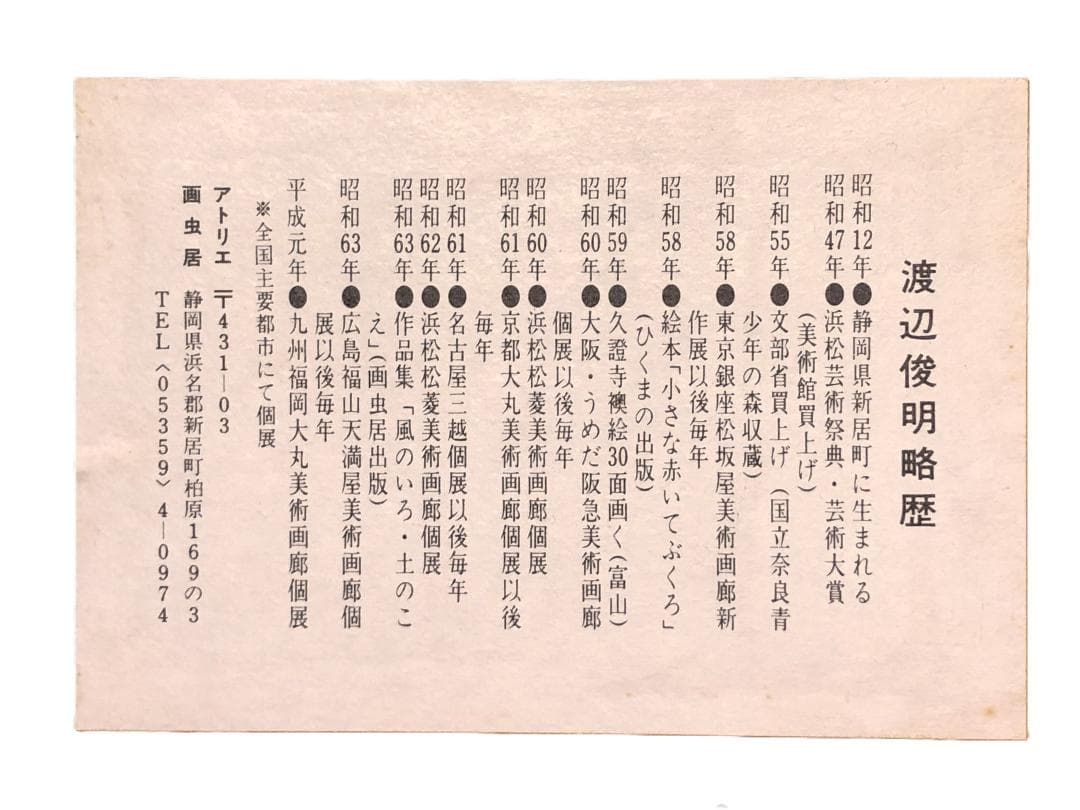 渡辺俊明略歴
昭和12年●静岡県新居町に生まれる
昭和47年●浜松芸術祭典・芸術大賞
(美術館買上げ)
昭和55年●文部省買上げ(国立奈良青
少年の森収蔵)
昭和58年●東京銀座松坂屋美術画廊新
作展以後毎年
昭和58年●絵本「小さな赤いてぶくろ」
(ひくまの出版)
昭和59年●久證寺襖絵30面画く(富山)
昭和60年●大阪・うめだ阪急美術画廊
個展以後毎年
昭和60年●浜松松菱美術画廊個展
昭和61年●京都大丸美術画廊個展以後
毎年
昭和61年●名古屋三越個展以後毎年
昭和62年●浜松松菱美術画廊個展
昭和63年●作品集「風のいろ・土のこ
え」(画虫居出版)
昭和63年●広島福山天満屋美術画廊個
展以後毎年
平成元年●九州福岡大丸美術画廊個展
※全国主要都市にて個展
アトリエ 〒431―03
画虫居 静岡県浜名郡新居町柏原169の3
TEL〈05359〉4―0974